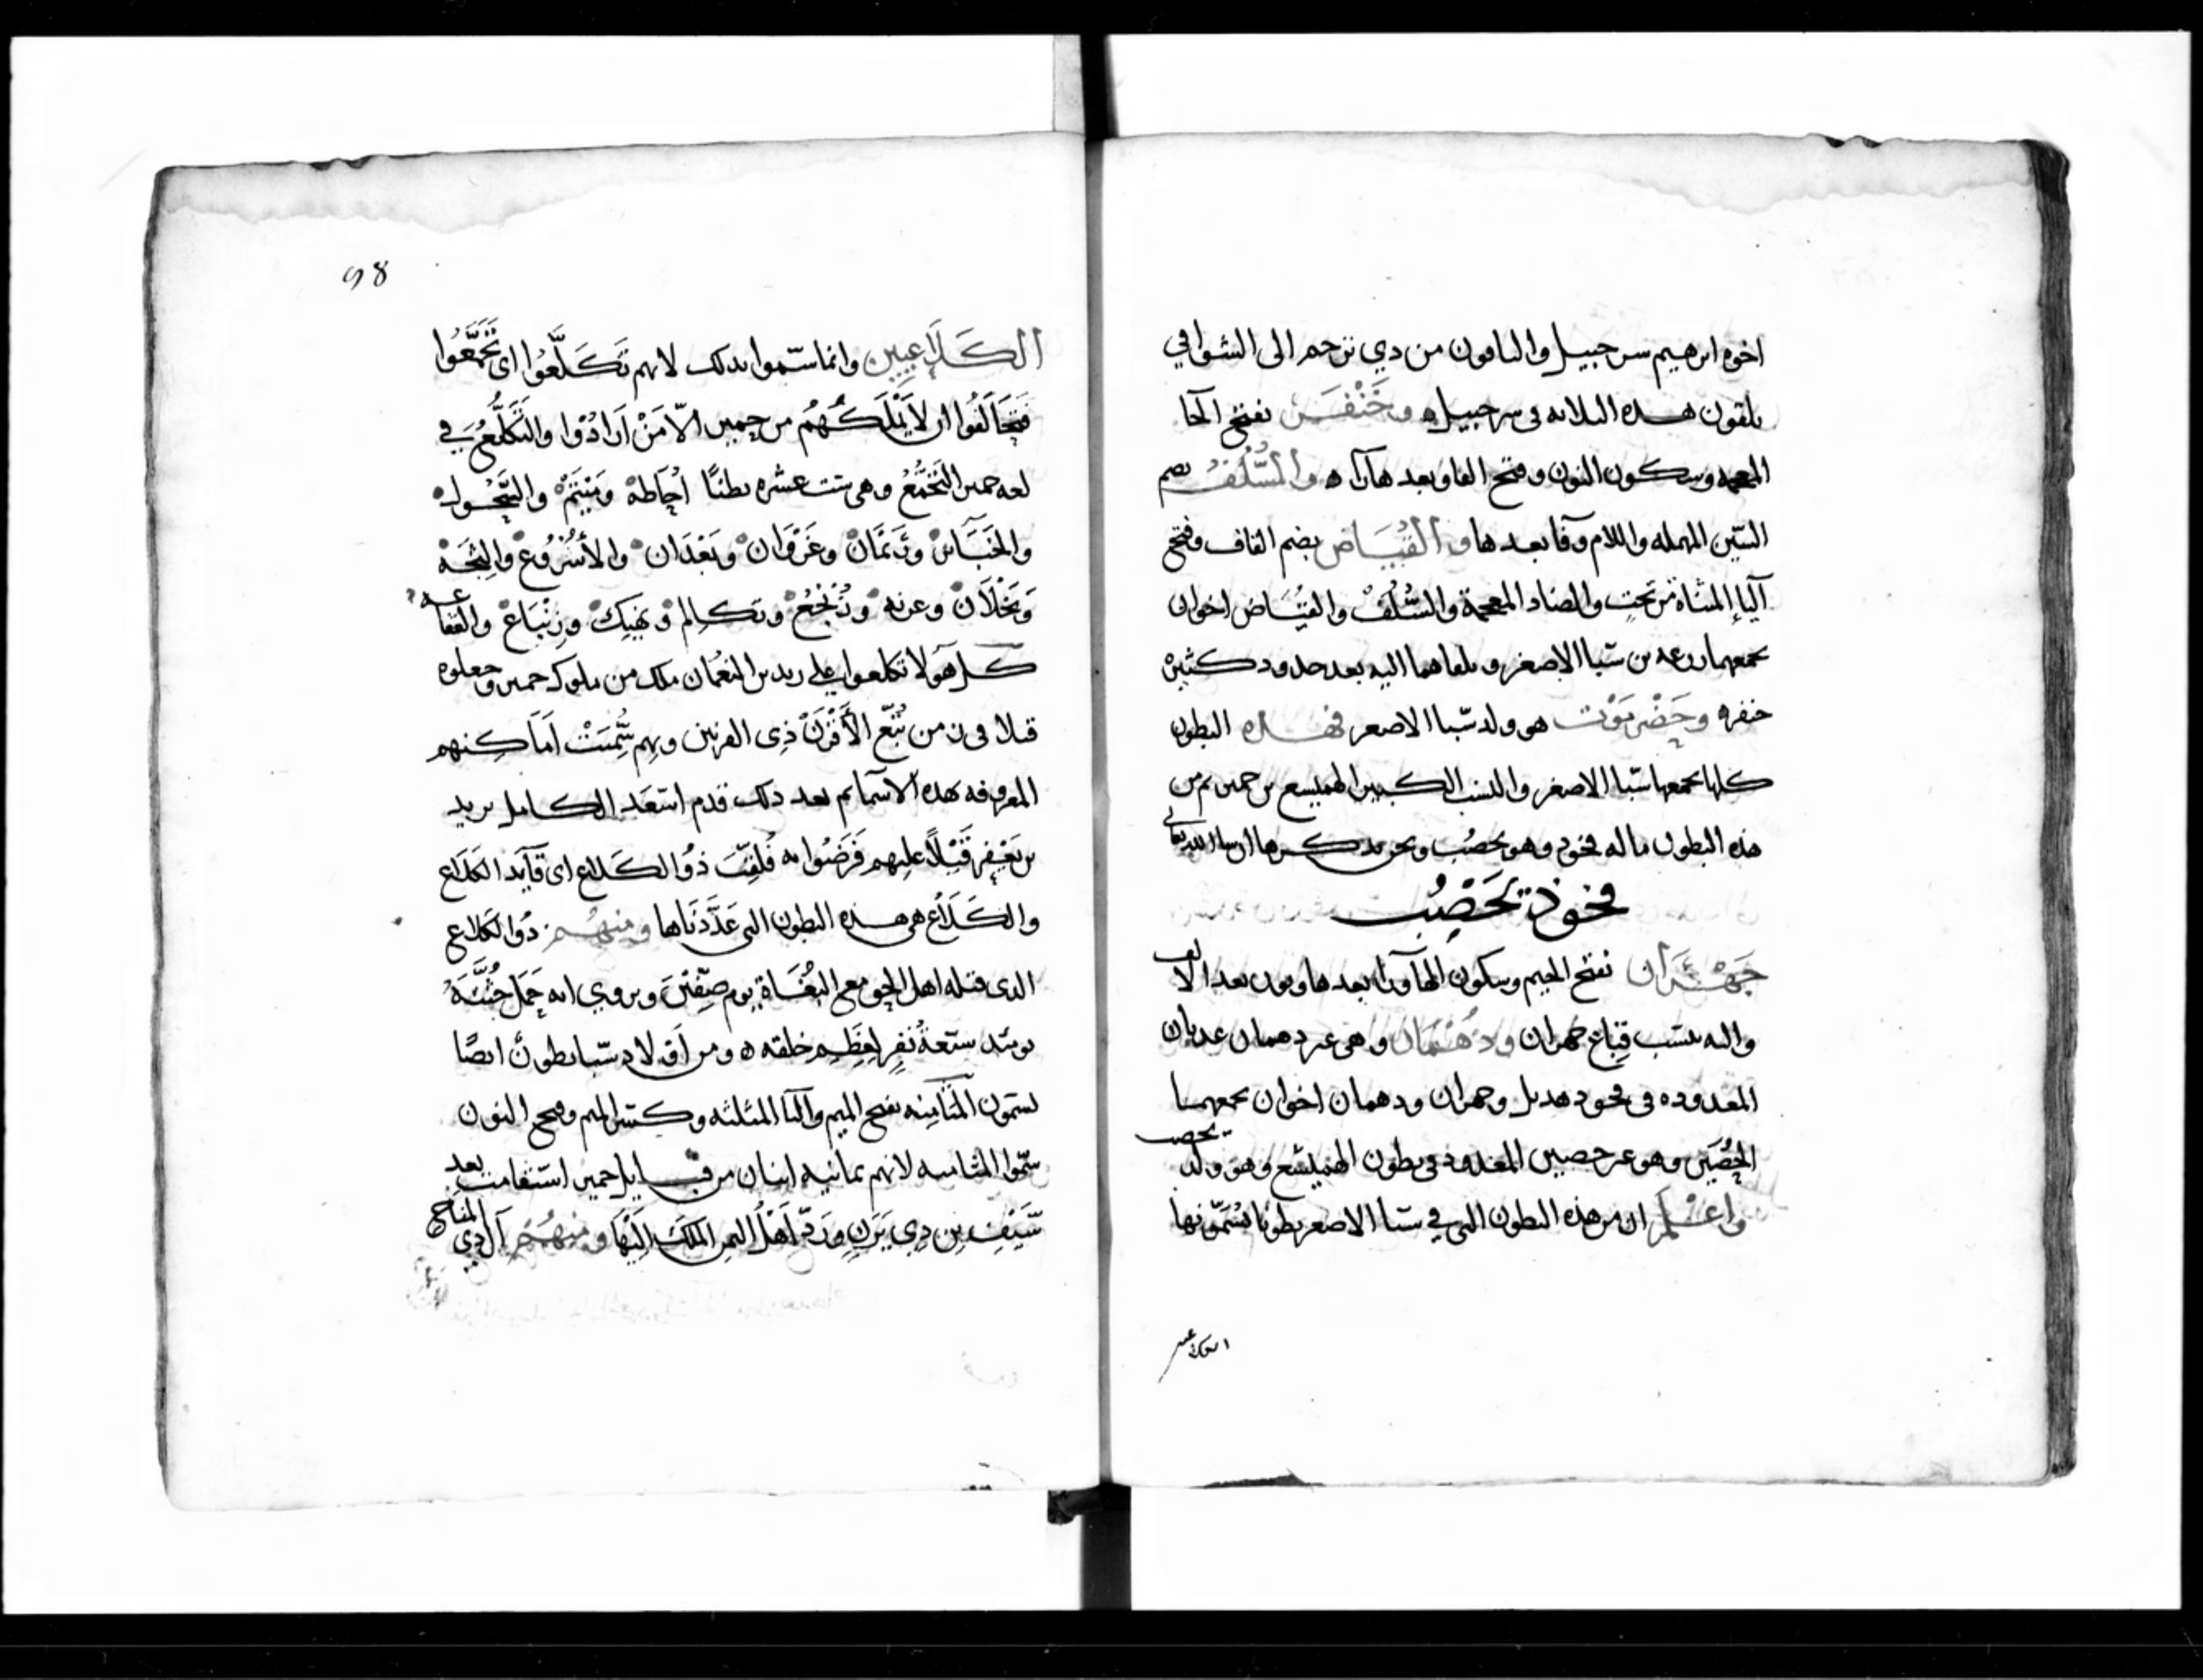 اخوه ابرهيم سرحبيل والباقون من ذي ترحم الى الشوافي
يلقون هذه الثلاثه في سرحبيل ه وخَنْفَر بفتح الخا
المعجمه وسكون النون وفتح الفا وبعدها را ه والسُّلُف بضم
السّين المهمله واللام وفا بعدها والقُيَاض بضم القاف وفتح
اليا المثناة من تحت والضاد المعجمة والسُّلُف والقُيَاض اخوان
يجمعهما زرعه بن سَبا الاصغر ويلقاهما اليه بعد جدود كثيرْ
خنفر ه وحَضْرمَوْت هو ولد سَبا الاصغر فهذه البطون
كلها يجمعها سَبا الاصغر والنسب الكبير الهميسع بن حمير ثم من
هذه البطون ما له فخوذ وهو يحصُب ونحن نذكرها ان شا الله تعالى
فخوذ يَحْصُب
جَهْرَان بفتح الجيم وسكون الها ورا بعدها ونون بعد الالف
واليه ينسب قِبَاع جهران ودُهْمَان وهي غير دهمان عدنان
المعدوده في فخوذ هذيل وجهران ودهمان اخوان يجمعهما يحصب
الحُصَين وهو غير حصين المعدود في بطون الهميسع وهو ولد
واعلم ان من هذه البطون التي في سبا الاصغر بطونا يُسَمّونها
الكَلاعيين وانما سمّوا بذلك لانهم تَكَلَّعُوا اى تَجَمَّعُوا
فتحَالَفُوا ان لا يَمْلِكَهُمْ من حمير الّا مَنْ اَرَادُوا والتَّكَلُّعُ في
لغه حمير التَّجَمُّعُ وهي ست عشره بطنًا اُحَاطهْ ومَيْتَمْ والسَّحُول
والخَبَاير وذَمَرَانْ وعَرَوَانْ وبَعْدَان والأُشْرُوع والثِجَهْ
وَنَخْلَانْ وعرنه وتكالم ونهيك وزِنْبَاعْ والقفاعه
كل هولا تكلعوا على يزيد بن النعْمان ملك من ملوك حمير وجعلوه
قيلا في زمن تُبّع الأَقْرَنْ ذِى القرنين وبهم سُمِّيَتْ اَمَاكِنهم
المعروفه بهذه الاسما ثم بعد ذلك قدم اسْعَد الكامل يزيد
بن يَعْفِر قَيْلًا عليهم فَرَضُوا به فَلُقِّبَ ذُو الكَلاع اى قآيد الكلاع
والكَلَاعُ هي هذه البطون التي عَدَّدْنَاها ومنهم ذو الكلاع
الذى قتله اهل الحق مع البُغَاة يوم صِفِّيْنَ ويروى انه حَمَلَ جُثَّتَهُ
يومئذ ستّعةُ نَفِرٍ لعِظَم خلقه ه ومن اولاد سَبا بطون ايضًا
يسمون المثَامِنه بفتح الميم والثا المثلثه وكسر الميم وفتح النون
سمّوا المثامنه لانهم ثمانيه ابيات من قبايل حمير استقامت بعد
سَيْفِ بن ذِى يَزَن وَرَدّ اَهْلُ اليمن الملكَ اِلَيْهَا ومنهُمْ آل ذِي المناخ
98